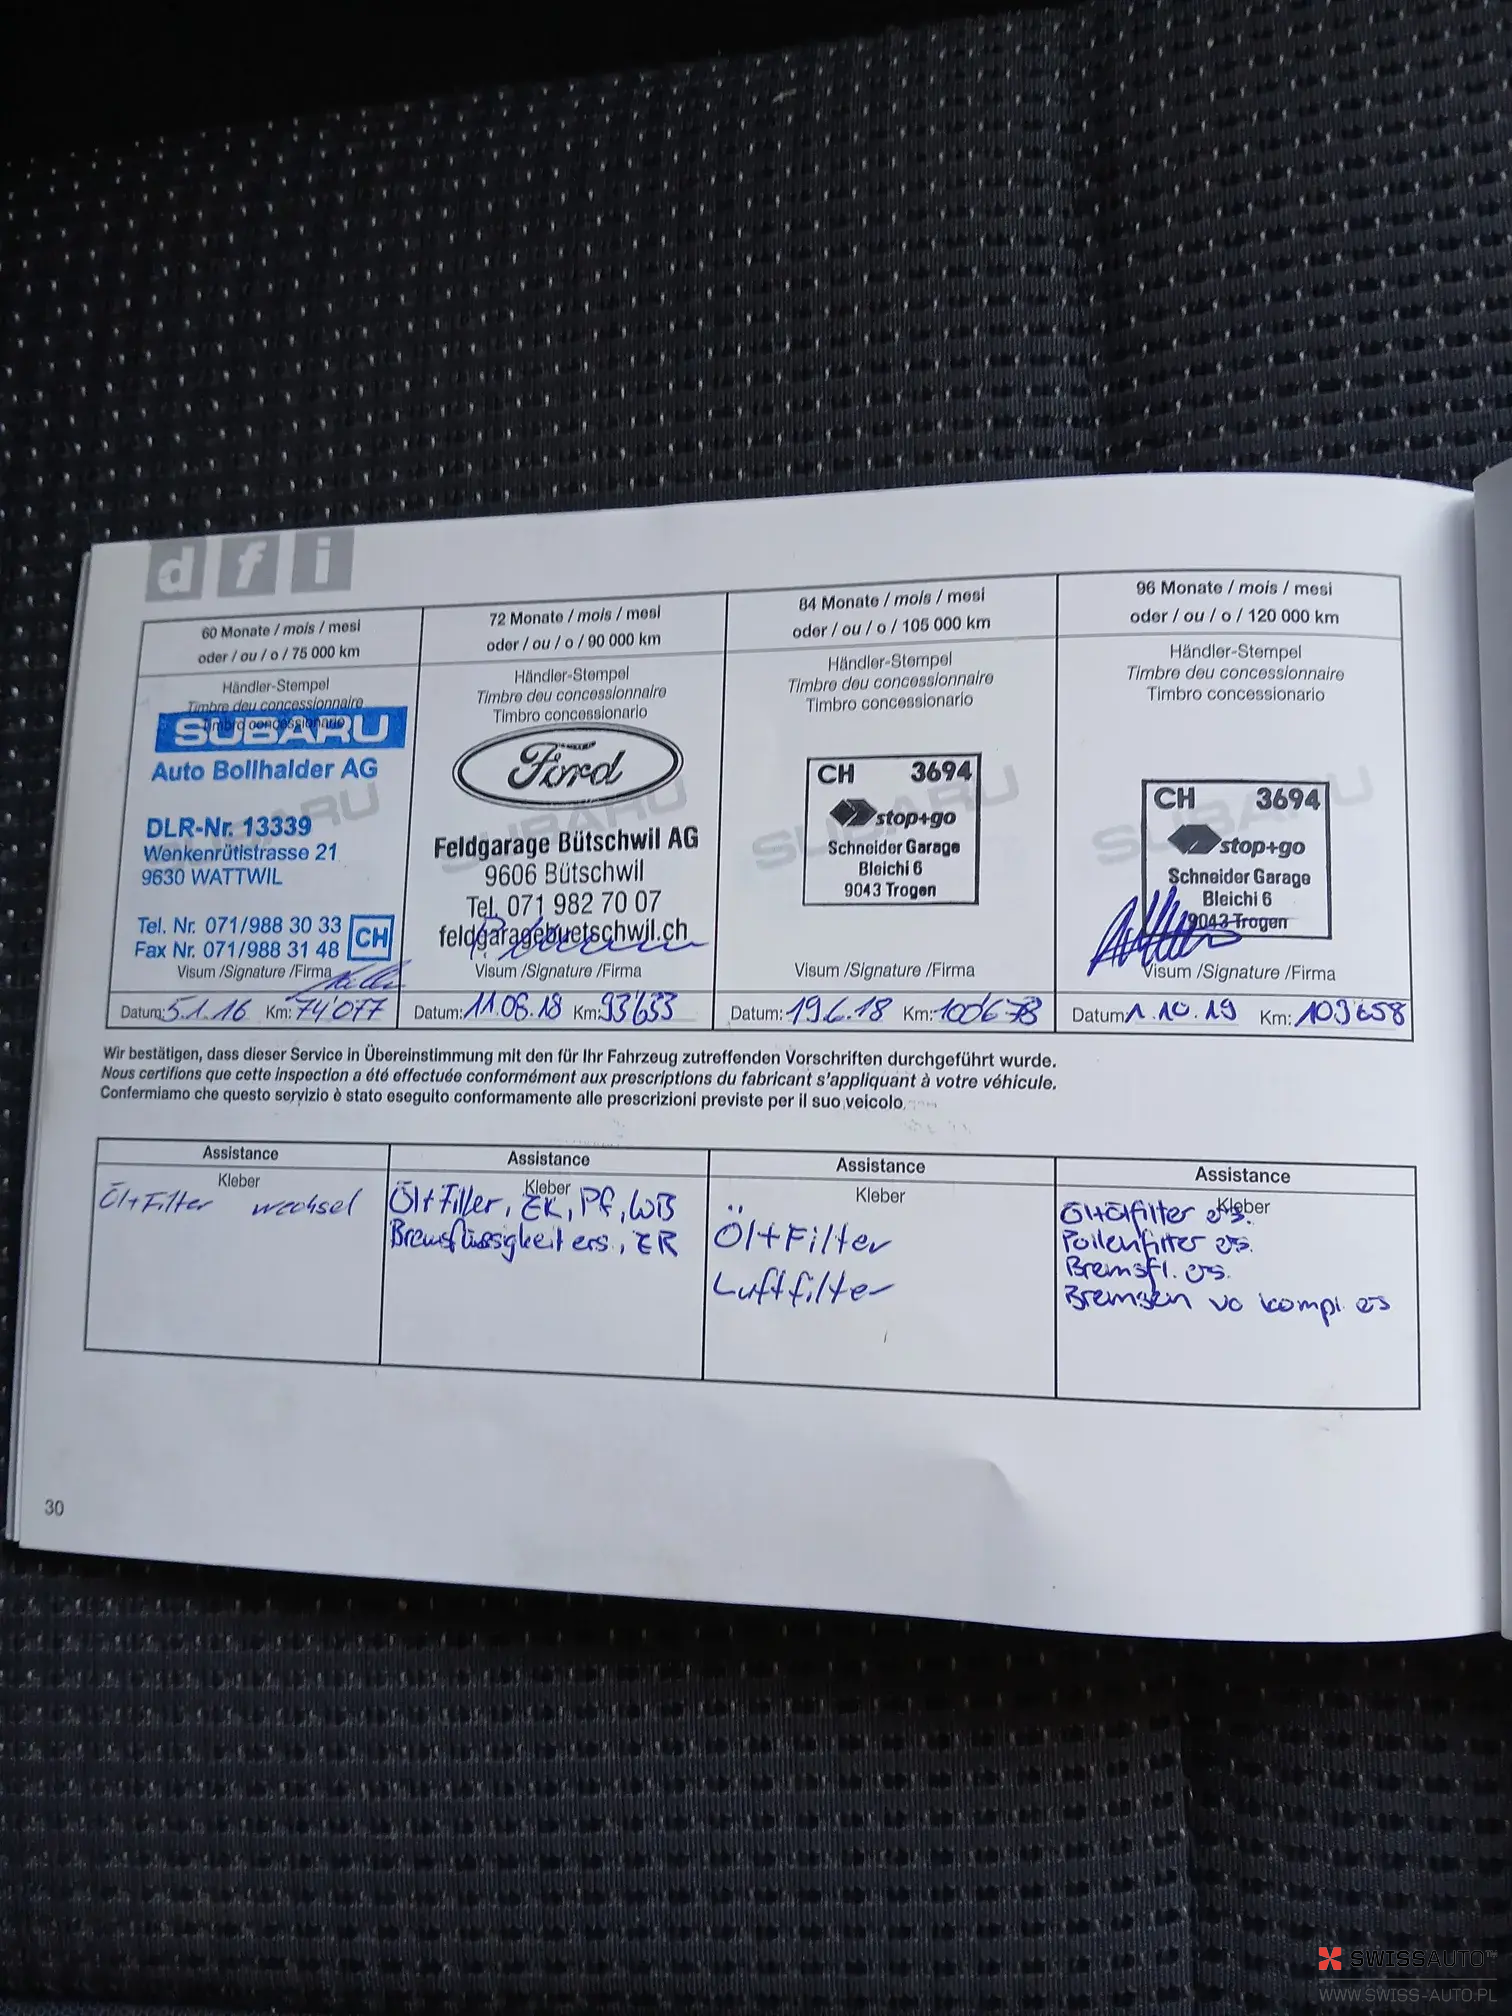 d f i
60 Monate / mois / mesi
oder / ou / o / 75 000 km
Händler-Stempel
Timbre deu concessionnaire
Timbro concessionario
SUBARU
Auto Bollhalder AG
DLR-Nr. 13339
Wenkenrütistrasse 21
9630 WATTWIL
Tel. Nr. 071/988 30 33
Fax Nr. 071/988 31 48
CH
Visum /Signature /Firma
Datum: 5.1.16 Km: 74'077
72 Monate / mois / mesi
oder / ou / o / 90 000 km
Händler-Stempel
Timbre deu concessionnaire
Timbro concessionario
Ford
SUBARU
Feldgarage Bütschwil AG
9606 Bütschwil
Tel. 071 982 70 07
feldgaragebuetschwil.ch
Visum /Signature /Firma
Datum: 11.08.18 Km: 93'633
84 Monate / mois / mesi
oder / ou / o / 105 000 km
Händler-Stempel
Timbre deu concessionnaire
Timbro concessionario
SUBARU
CH 3694
stop+go
Schneider Garage
Bleichi 6
9043 Trogen
Visum /Signature /Firma
Datum: 19.6.18 Km: 100'678
96 Monate / mois / mesi
oder / ou / o / 120 000 km
Händler-Stempel
Timbre deu concessionnaire
Timbro concessionario
SUBARU
CH 3694
stop+go
Schneider Garage
Bleichi 6
9043 Trogen
Visum /Signature /Firma
Datum: 1.10.19 Km: 109'658
Wir bestätigen, dass dieser Service in Übereinstimmung mit den für Ihr Fahrzeug zutreffenden Vorschriften durchgeführt wurde.
Nous certifions que cette inspection a été effectuée conformément aux prescriptions du fabricant s'appliquant à votre véhicule.
Confermiamo che questo servizio è stato eseguito conformamente alle prescrizioni previste per il suo veicolo.
Assistance
Kleber
Öl+Filter wechsel
Assistance
Kleber
Öl+Filter, ZK, Pf, WB
Bremsflüssigkeit ers., ER
Assistance
Kleber
Öl+Filter
Luftfilter
Assistance
Kleber
Öl+Ölfilter ers.
Pollenfilter ers.
Bremsfl. ers.
Bremsen vo kompl. ers
30
SWISSAUTO
WWW.SWISS-AUTO.PL